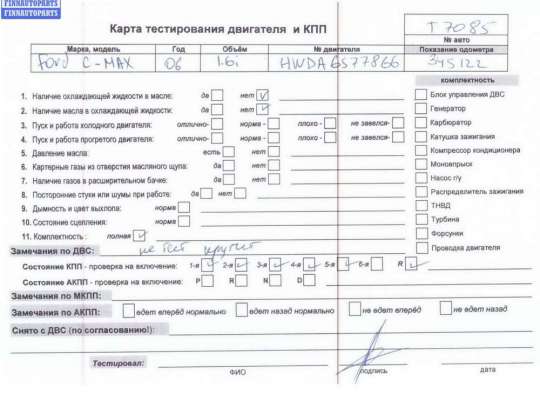 FINNAUTOPARTS
FINNAUTOPARTS
Карта тестирования двигателя и КПП
T 7085
№ авто
Марка, модель Год Объём № двигателя Показание одометра
Ford C-MAX 06 1.6i HWDA 6S77866 345122
комплектность
1. Наличие охлаждающей жидкости в масле: да нет
2. Наличие масла в охлаждающей жидкости: да нет
3. Пуск и работа холодного двигателя: отлично- норма - плохо - не завелся-
4. Пуск и работа прогретого двигателя: отлично- норма - плохо - не завелся-
5. Давление масла: есть нет
6. Картерные газы из отверстия масляного щупа: да нет
7. Наличие газов в расширительном бачке: да нет
8. Посторонние стуки или шумы при работе: да нет
9. Дымность и цвет выхлопа: норма
10. Состояние сцепления: норма
11. Комплектность : полная
Блок управления ДВС
Генератор
Карбюратор
Катушка зажигания
Компрессор кондиционера
Моновпрыск
Насос г/у
Распределитель зажигания
ТНВД
Турбина
Форсунки
Проводка двигателя
Замечания по ДВС: не тест крутит
Состояние КПП - проверка на включение: 1-я 2-я 3-я 4-я 5-я 6-я R
Состояние АКПП - проверка на включение: P R N D
Замечания по МКПП:
Замечания по АКПП: едет вперёд нормально едет назад нормально не едет вперёд не едет назад
Снято с ДВС (по согласованию!):
Тестировал:
ФИО подпись дата